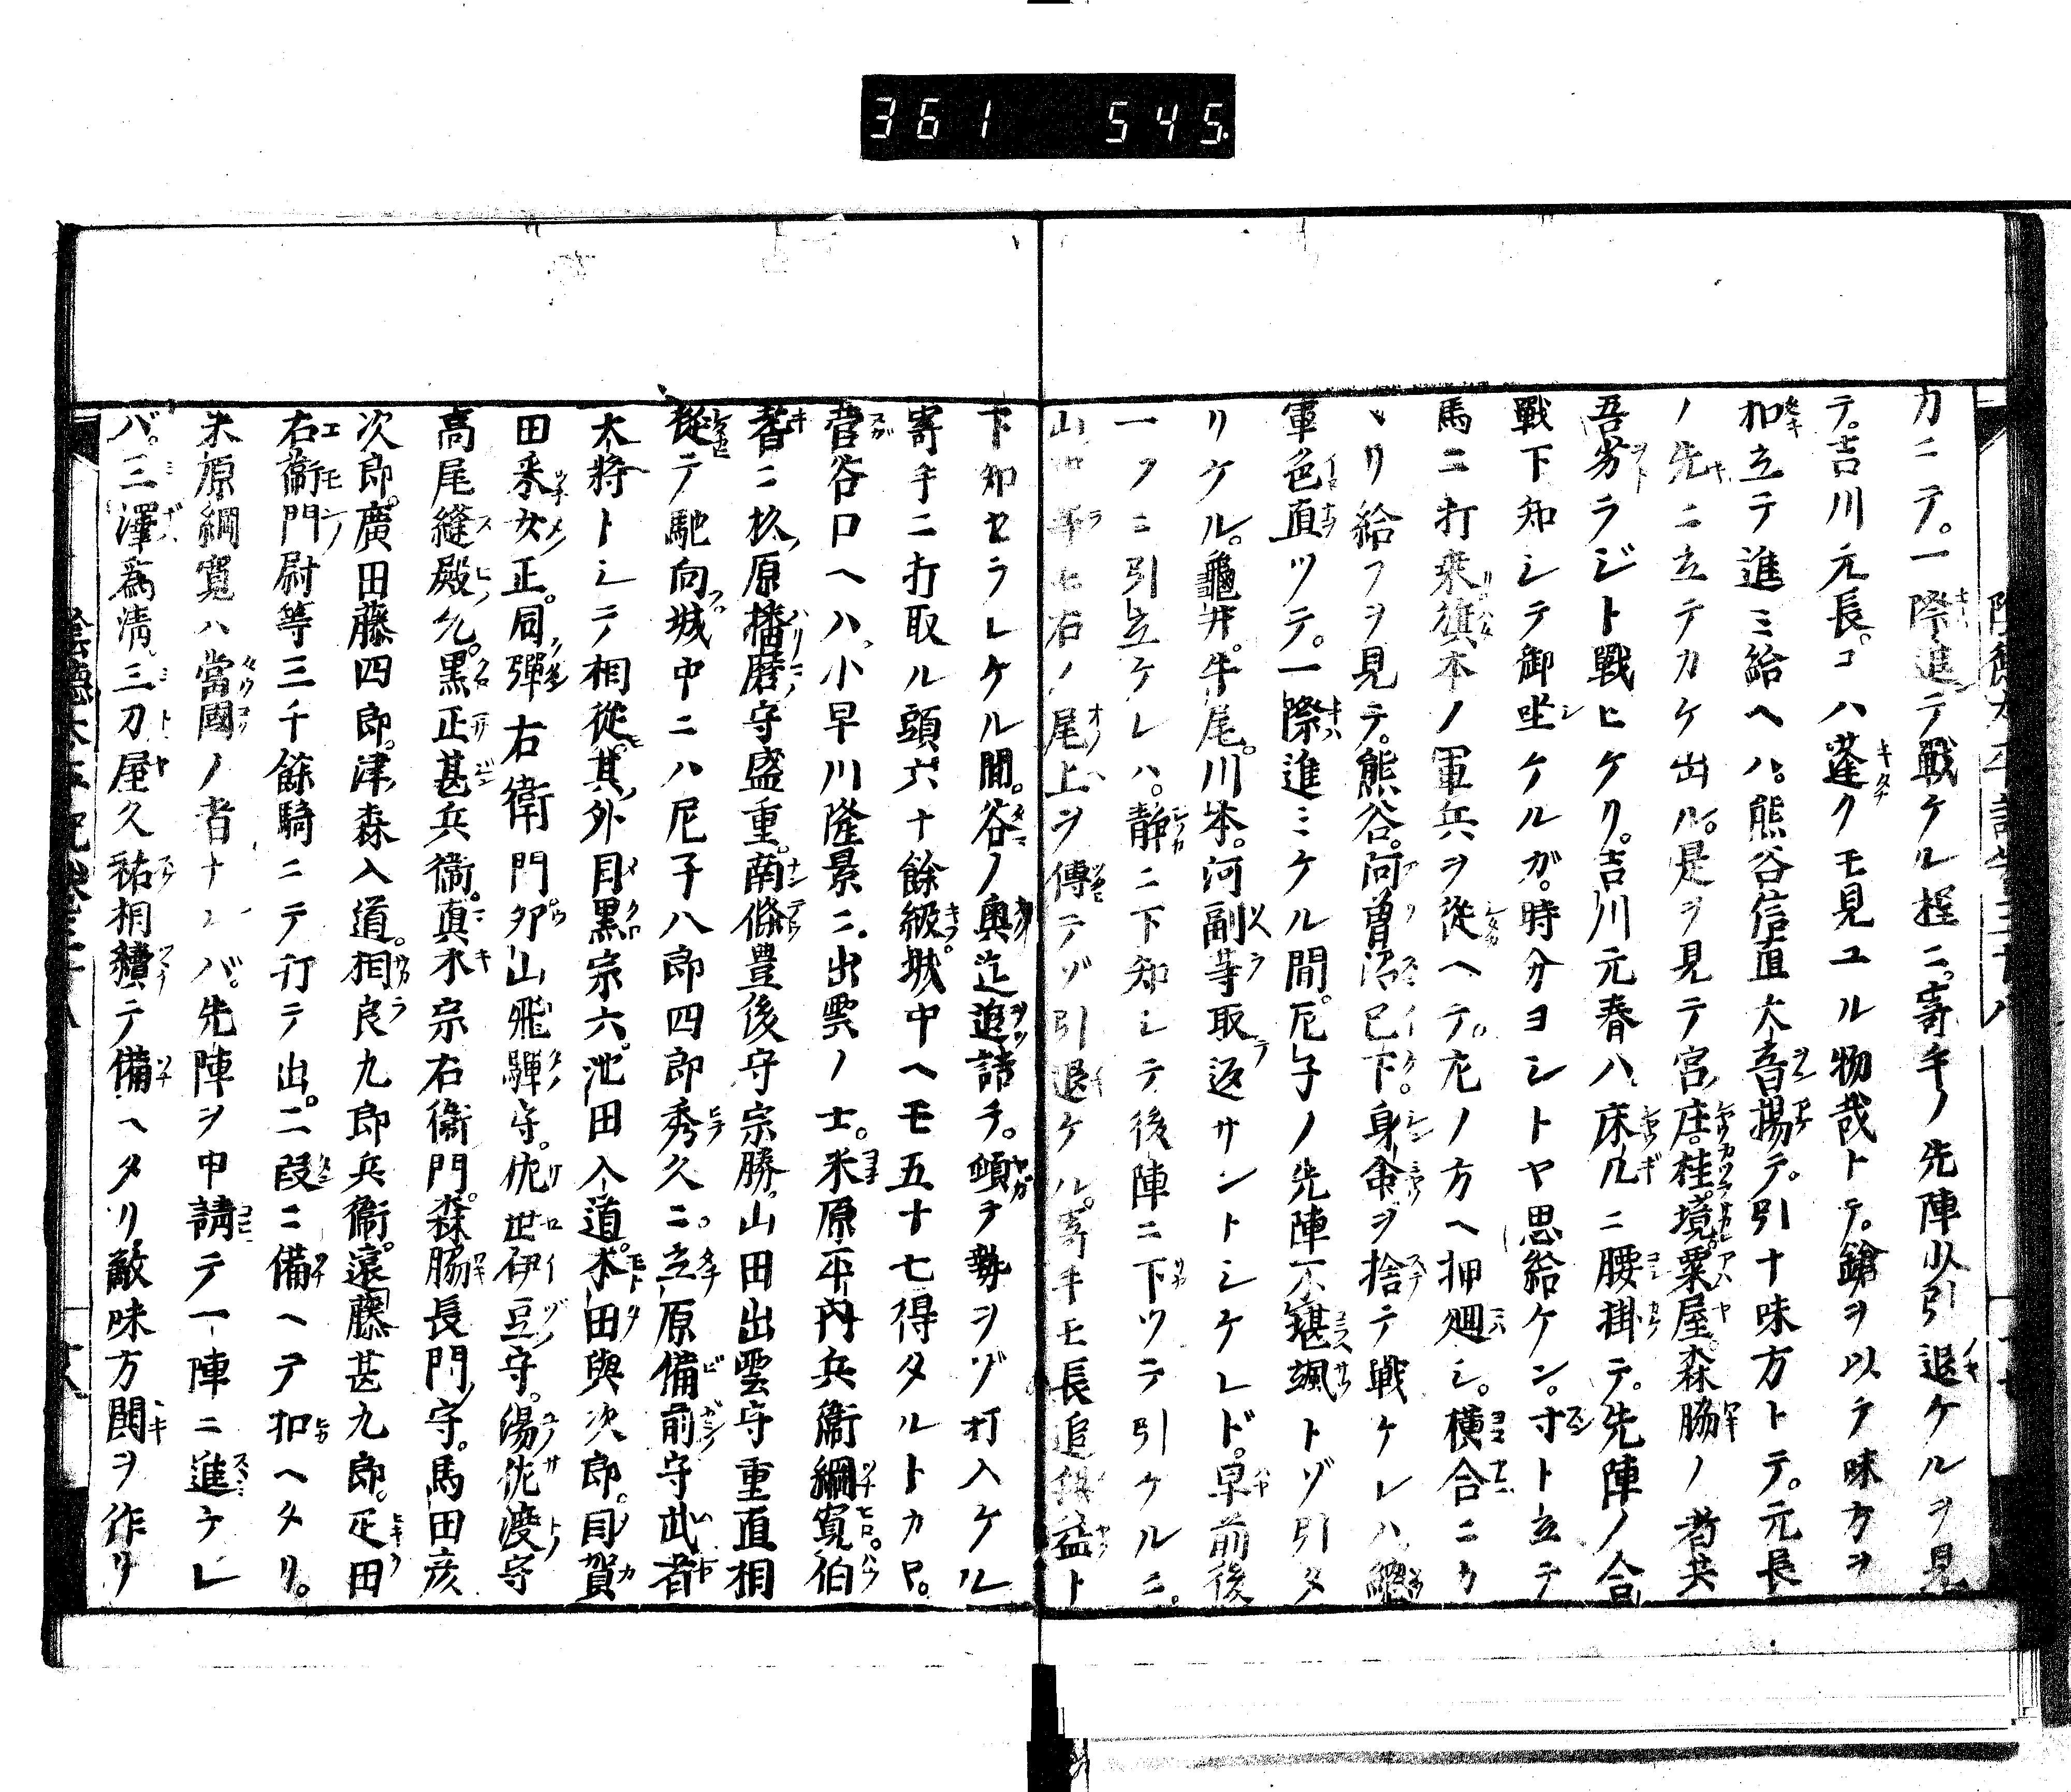 361 545
カニテ。一際進テ戦ケル程ニ。寄手ノ先陣少引退ケルヲ見
テ。吉川元長。コハ蓬クモ見ユル物哉トテ。鎗ヲ以テ味方ヲ
扣立テ進ミ給ヘハ。熊谷信直大音揚テ。引ナ味方トテ。元長
ノ先ニ立テカケ出ル。是ヲ見テ宮庄。桂。境。粟屋。森脇ノ者共
吾劣ラジト戦ヒケリ。吉川元春ハ床几ニ腰掛テ。先陣ノ合
戦下知シテ御坐ケルガ。時分ヨシトヤ思給ケン。寸ト立テ
馬ニ打乗旗本ノ軍兵ヲ従ヘテ。左ノ方ヘ押廻シ。横合ニカ
ヽリ給フヲ見テ。熊谷。阿曽沼已下。身命ヲ捨テ戦ケレハ。總
軍色直ツテ。一際進ミケル間。尼子ノ先陣不堪颯トゾ引タ
リケル。龜井。牛尾。川本。河副等取返サントシケレド。早前後
一ツニ引立ケレハ。静ニ下知シテ後陣ニ下ツテ引ケルニ。
山中等モ右ノ尾上ヲ傳テゾ引退ケル。寄手モ長追無益ト
下知セラレケル間。谷ノ奥迄追詰テ。頓テ勢ヲゾ打入ケル
寄手ニ打取ル頭六十餘級。城中ヘモ五十七得タルトカヤ。
菅谷口ヘハ。小早川隆景ニ。出雲ノ士。米原平内兵衞綱寛伯
耆ニ杦原播磨守盛重。南條豊後守宗勝。山田出雲守重直相
従テ馳向。城中ニハ尼子八郎四郎秀久ニ。立原備前守武者
大将トシテ相従。其外目黒宗六。池田入道。本田與次郎。目賀
田釆女正。同彈右衛門卯山飛騨守。佐世伊豆守。湯佐渡守
高尾縫殿允。黒正甚兵衞。真木宗右衞門。森脇長門守。馬田彦
次郎。廣田藤四郎。津森入道。相良九郎兵衞。遠藤甚九郎。疋田
右衞門尉等三千餘騎ニテ打テ出。二段ニ備ヘテ扣ヘタリ。
米原綱寛ハ當國ノ者ナレバ。先陣ヲ申請テ一陣ニ進ケレ
バ。三澤為清。三刀屋久祐相續テ備ヘタリ。敵味方鬨ヲ作リ